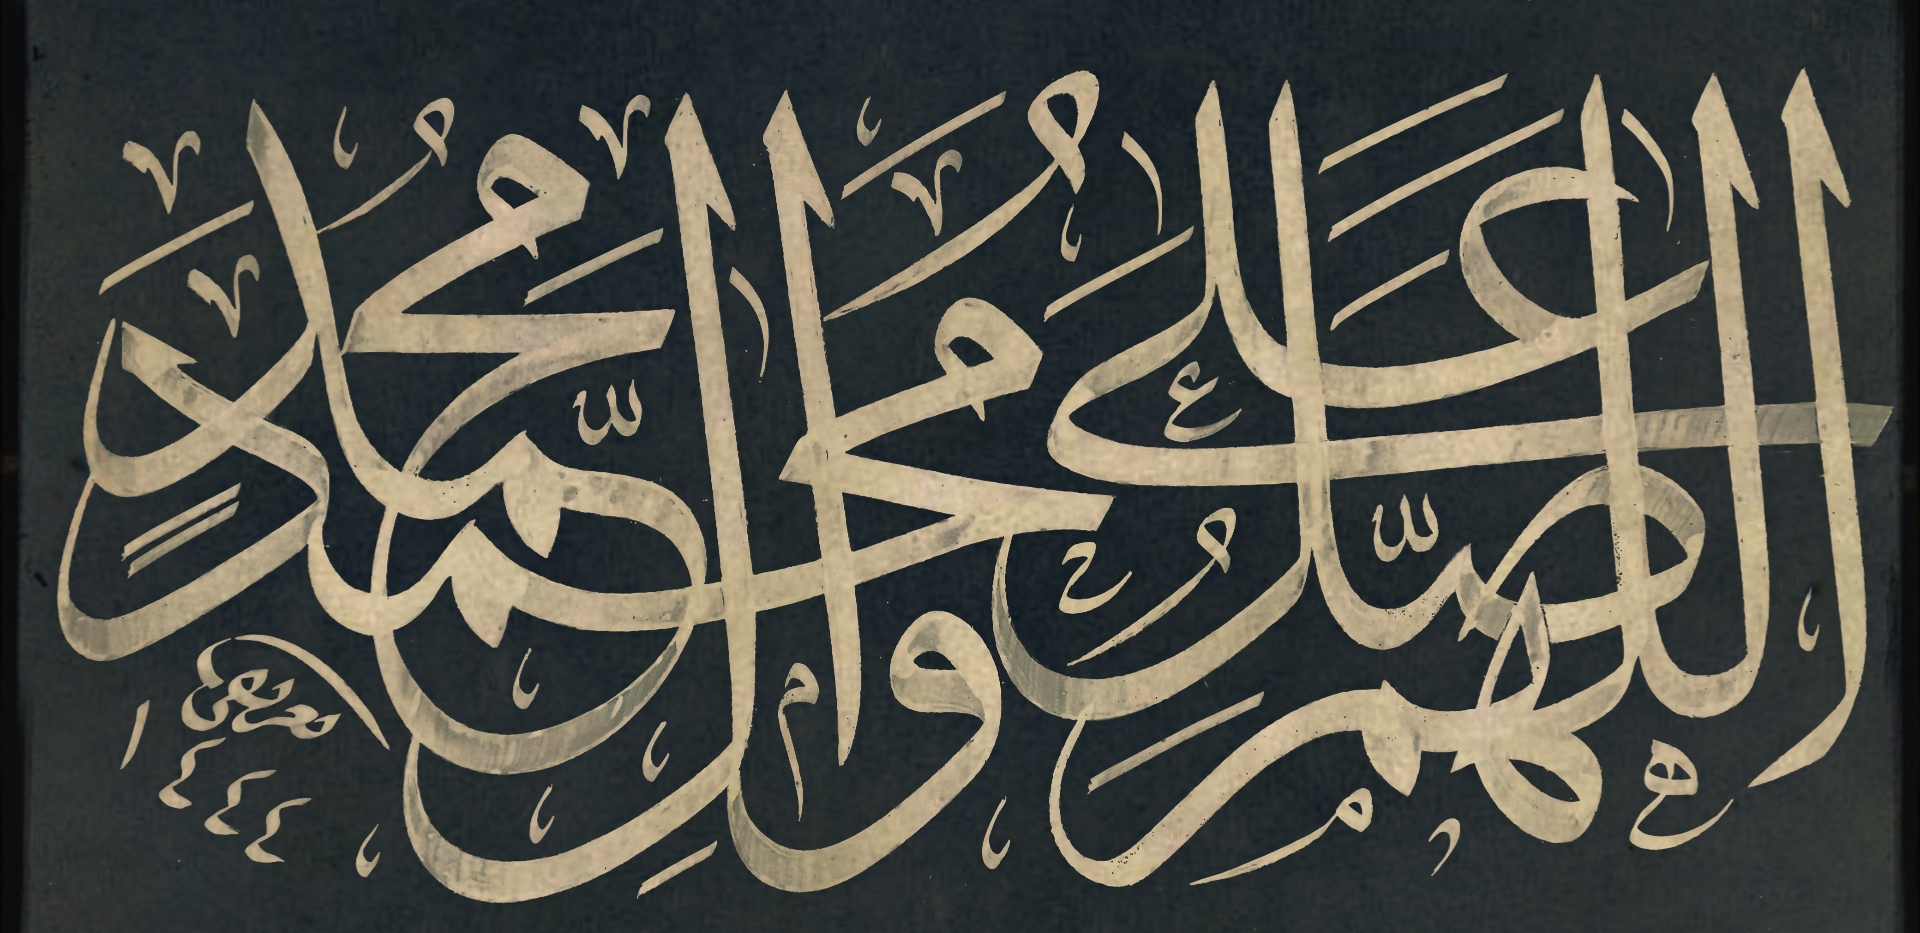 اللّٰهُمَّ صَلِّ عَلَىٰ مُحَمَّدٍ وَاٰلِ مُحَمَّدٍ